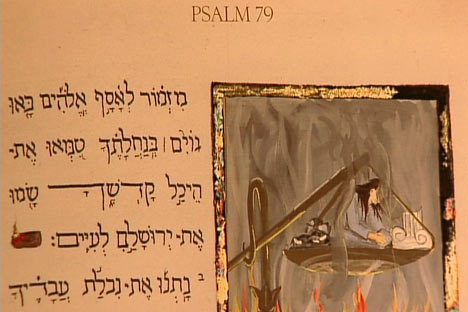 PSALM 79
מִזְמוֹר לְאָסָף אֱלֹהִים בָּאוּ
גוֹיִם | בְּנַחֲלָתֶךָ טִמְּאוּ אֶת־
הֵיכַל קָדְשֶׁךָ שָׂמוּ
אֶת־יְרוּשָׁלִַם לְעִיִּים:
ב נָתְנוּ אֶת־נִבְלַת עֲבָדֶיךָ